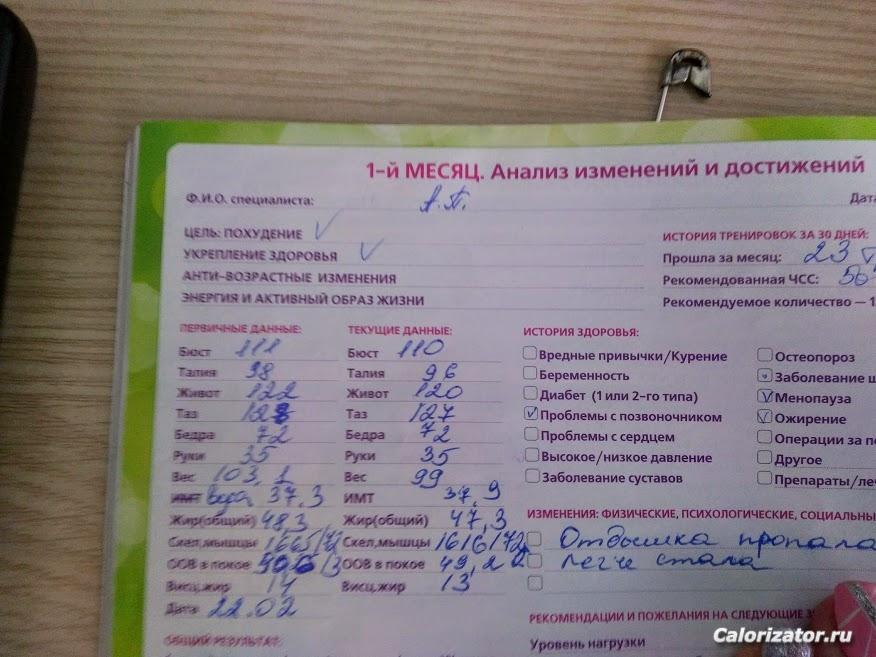 1-й МЕСЯЦ. Анализ изменений и достижений
Ф.И.О. специалиста: А.П. Дата
ЦЕЛЬ: ПОХУДЕНИЕ √
УКРЕПЛЕНИЕ ЗДОРОВЬЯ √
АНТИ-ВОЗРАСТНЫЕ ИЗМЕНЕНИЯ
ЭНЕРГИЯ И АКТИВНЫЙ ОБРАЗ ЖИЗНИ
ИСТОРИЯ ТРЕНИРОВОК ЗА 30 ДНЕЙ:
Прошла за месяц: 23
Рекомендованная ЧСС:
Рекомендуемое количество — 1
ПЕРВИЧНЫЕ ДАННЫЕ:
Бюст 111
Талия 98
Живот 122
Таз
Бедра 72
Руки 35
Вес 103,1
ИМТ вода 37,3
Жир(общий) 48,3
Скел,мышцы
ООВ в покое
Висц,жир 14
Дата 22.02
ОБЩИЙ РЕЗУЛЬТАТ:
ТЕКУЩИЕ ДАННЫЕ:
Бюст 110
Талия 96
Живот 120
Таз 127
Бедра 72
Руки 35
Вес 99
ИМТ 37,9
Жир(общий) 47,3
Скел,мышцы
ООВ в покое
Висц,жир 13
ИСТОРИЯ ЗДОРОВЬЯ:
Вредные привычки/Курение
Беременность
Диабет (1 или 2-го типа)
Проблемы с позвоночником
Проблемы с сердцем
Высокое/низкое давление
Заболевание суставов
Остеопороз
Заболевание щ
Менопауза
Ожирение
Операции за по
Другое
Препараты/ле
ИЗМЕНЕНИЯ: ФИЗИЧЕСКИЕ, ПСИХОЛОГИЧЕСКИЕ, СОЦИАЛЬНЫ
Отдышка пропала
легче стала
РЕКОМЕНДАЦИИ И ПОЖЕЛАНИЯ НА СЛЕДУЮЩИЕ
Уровень нагрузки
Calorizator.ru